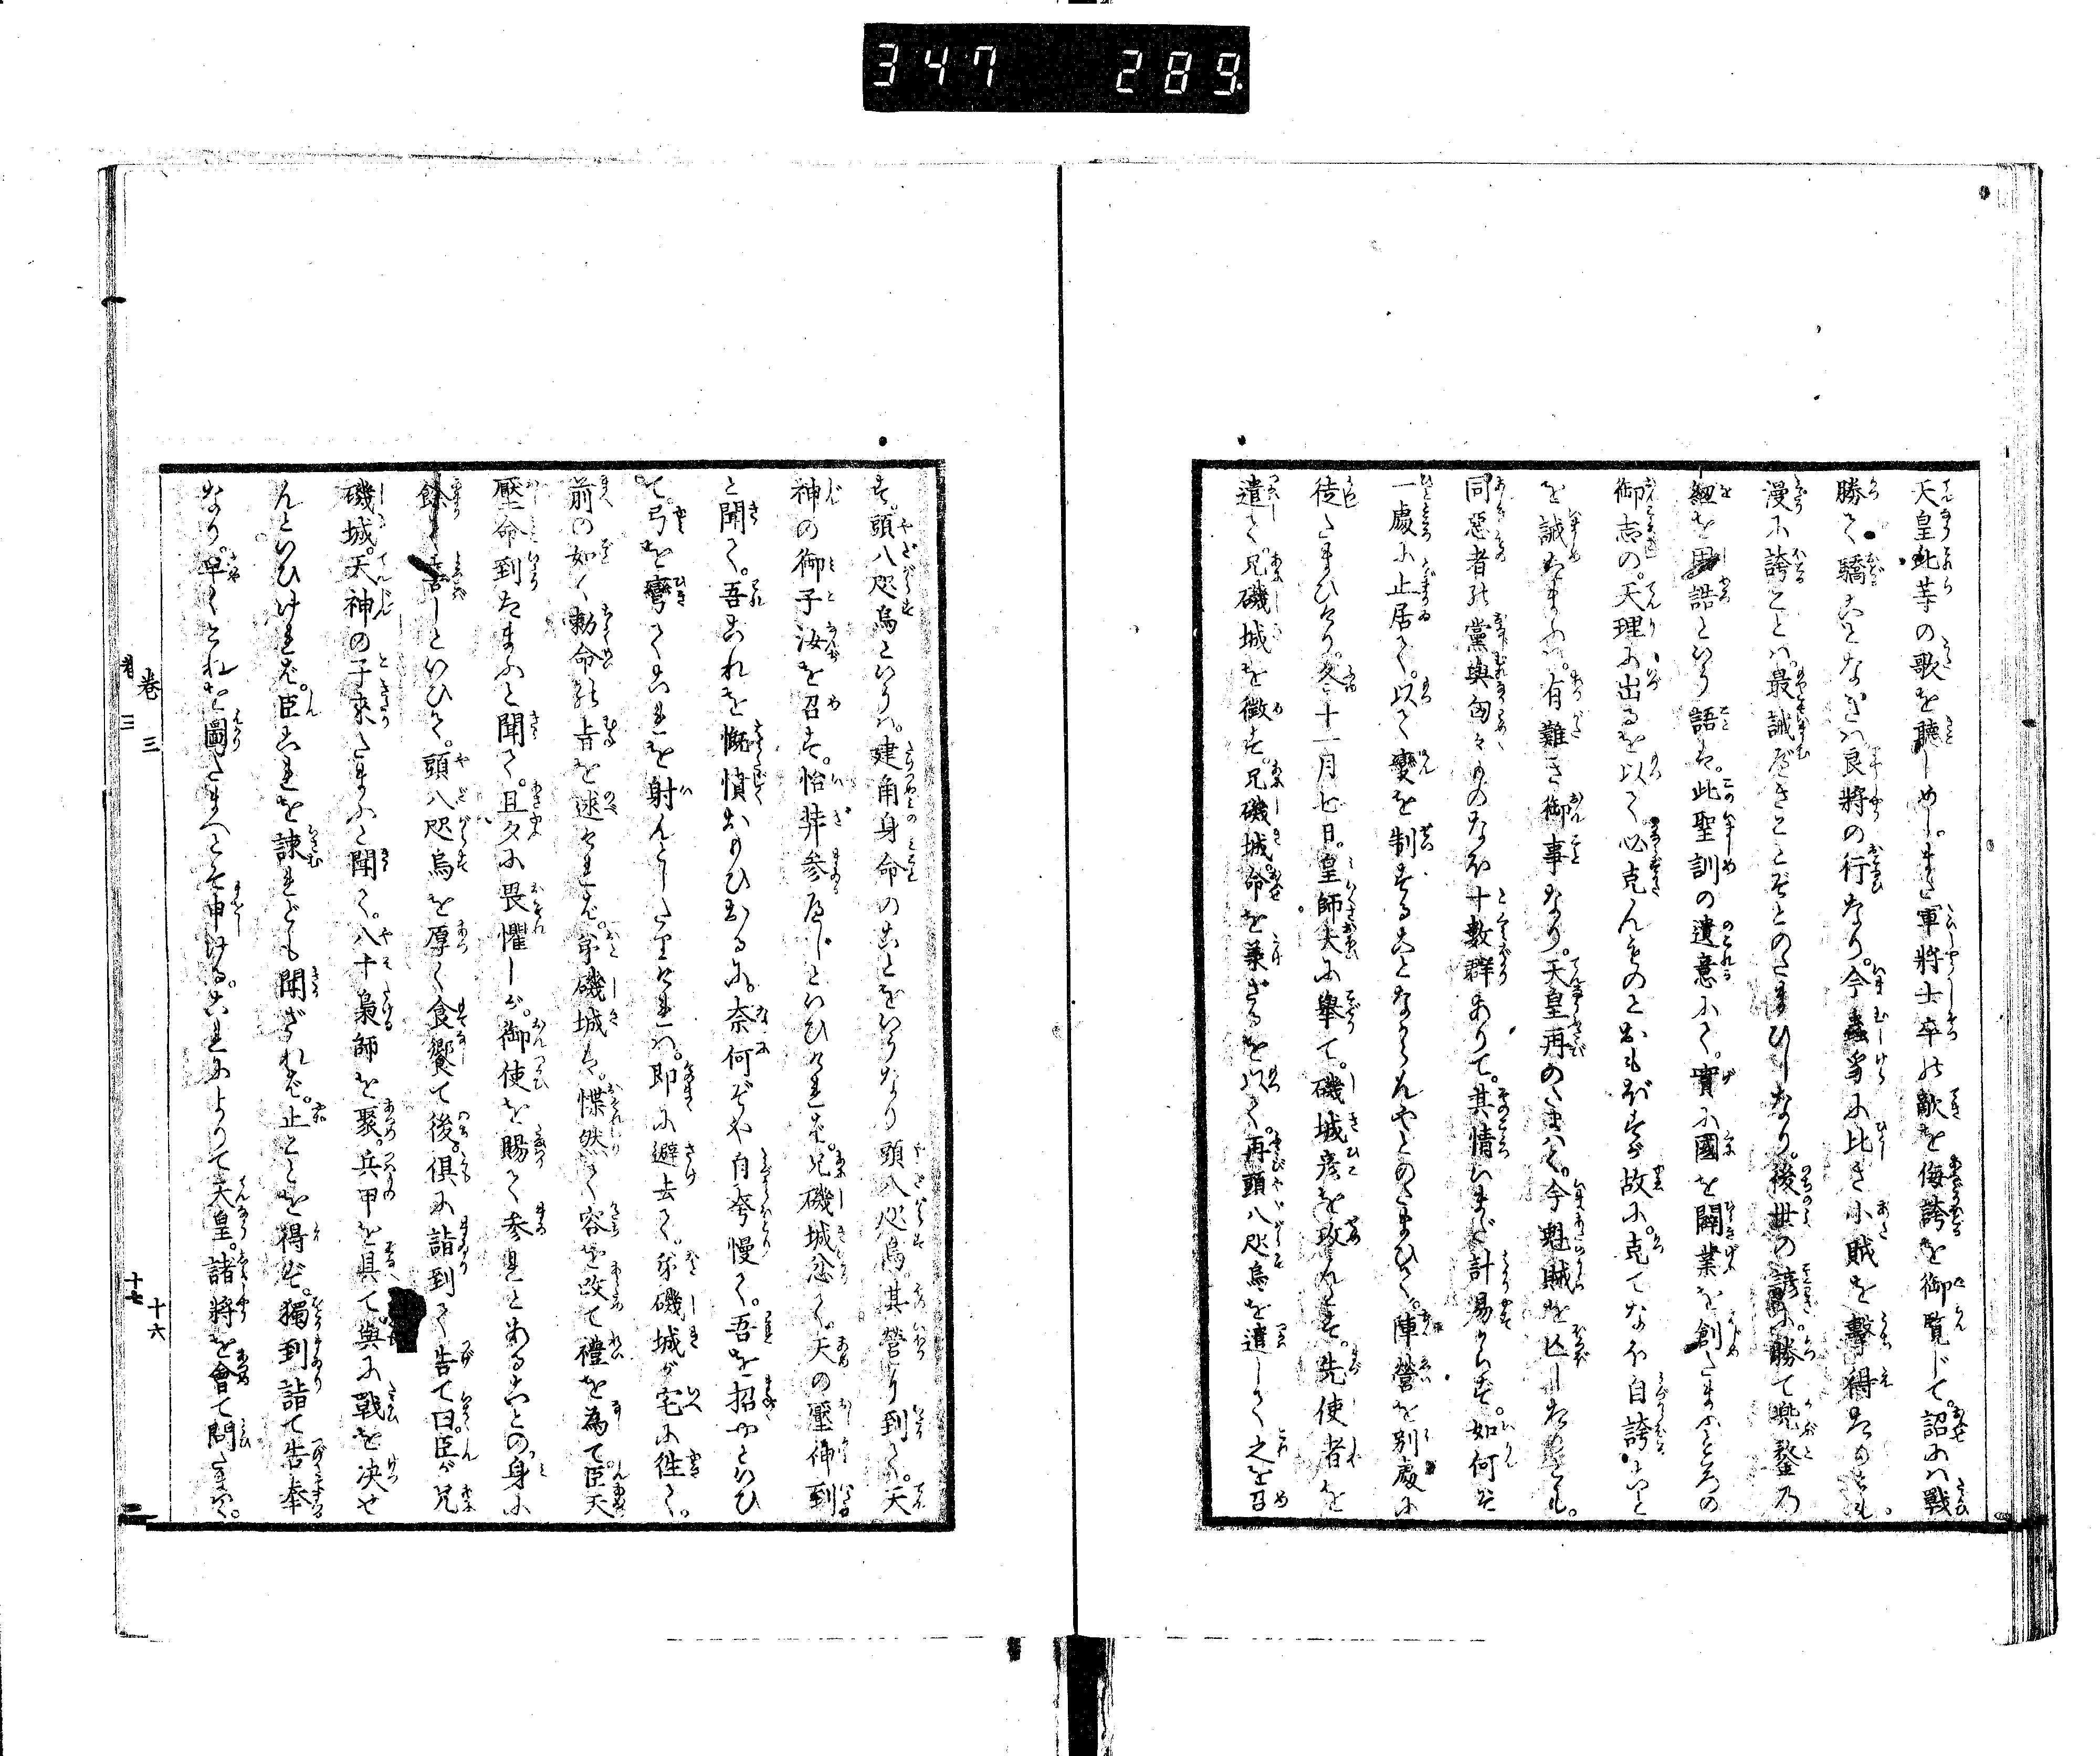 347 289
天皇此等の歌を聴しめし。また軍将士卒の敵を侮誇を御覧じて。詔には戦
勝て驕ことなきは良将の行なり。今蟲ケラに比き小賊を撃得たるとも。
漫に誇ことは。最誡べきことぞとのたまひしなり。後世の諺に勝て兜鍪乃
紐をしめ誥といふ語は。此聖訓の遺意にて。実に國を闢業を創たまふところの
御志の。天理に出るを以て必克んものとおもほすが故に。克てなほ自誇ことと
を誡たまふは。有難き御事なり。天皇再のたまはく。今魁賊を亡しぬれども。
同惡者の黨與匈々ものなほ十數群ありて。其情いまだ計易からず。如何ぞ
一處に止居て。以て變を制することなからんやとのたまひて。陣營を別處に
徒たまひけり。冬十一月七日。皇師大に舉て。磯城彦を攻んとす。先使者を
遣して。兄磯城を徴す。兄磯城。命を兼ざるを以て。再頭八咫烏を遣して之を召
す。頭八咫烏といふは。建角身命のことをいふなり頭八咫烏。其營に到て。天
神の御子汝を召す。怡弉参るべしといひければ。兄磯城忿て。天の壓神到
と聞て。吾これを慨憤おもひおるに。奈何ぞや自夸慢て。吾を招やといひ
て。弓を彎てこれを射んとしたりければ。即に避去て。弟磯城が宅に徃て。
前の如く勅命の旨を述ければ。弟磯城は。惵然て容を改て禮を為て。臣天
壓命到たまふと聞て。旦夕に畏懼しが。御使を賜て参れとあることの身に
餘て喜しといひて。頭八咫烏を厚く食饗て後。倶に詣到て告て曰。臣が兄
磯城。天神の子来たまふと聞て。八十梟師を聚。兵甲を具て與に戰を决せ
んといひければ。臣これを諌れども聞ざれば。止ことを得ず。獨到詣て告奉
なり。早くこれを圖たまへとぞ申ける。これによりて天皇。諸将を會て問たまはく。
巻三
十六
十七